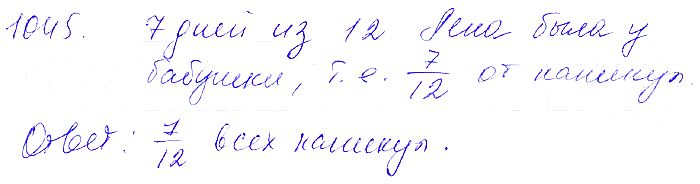 1045. 7 дней из 12 Лена была у
бабушки, т.е. 7/12 от каникул.
Ответ: 7/12 всех каникул.